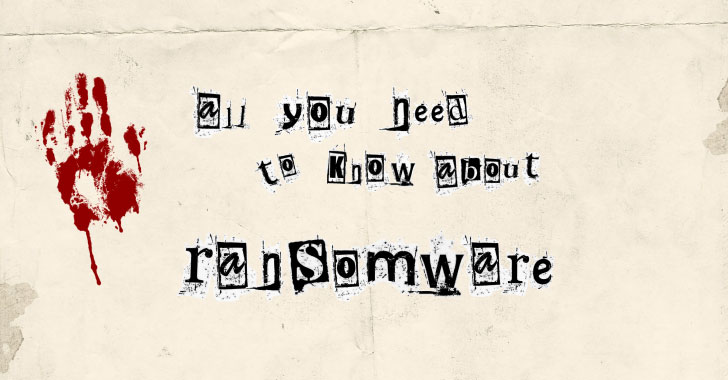 all you need
to Know about
ranSomware